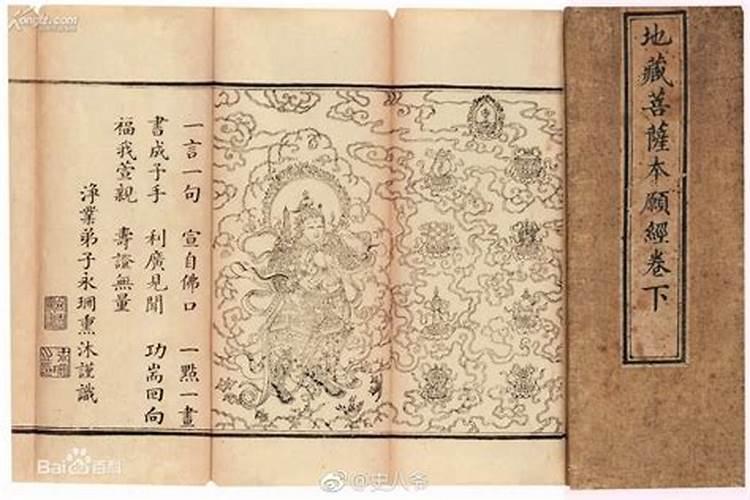 地藏菩薩本願經卷下
一言一句 宣自佛口 一點一畫
書成予手 利廣見聞 功耑回向
福我萱親 壽證無量
淨業弟子永 熏沐謹識
Kongfz.com
Bai百科